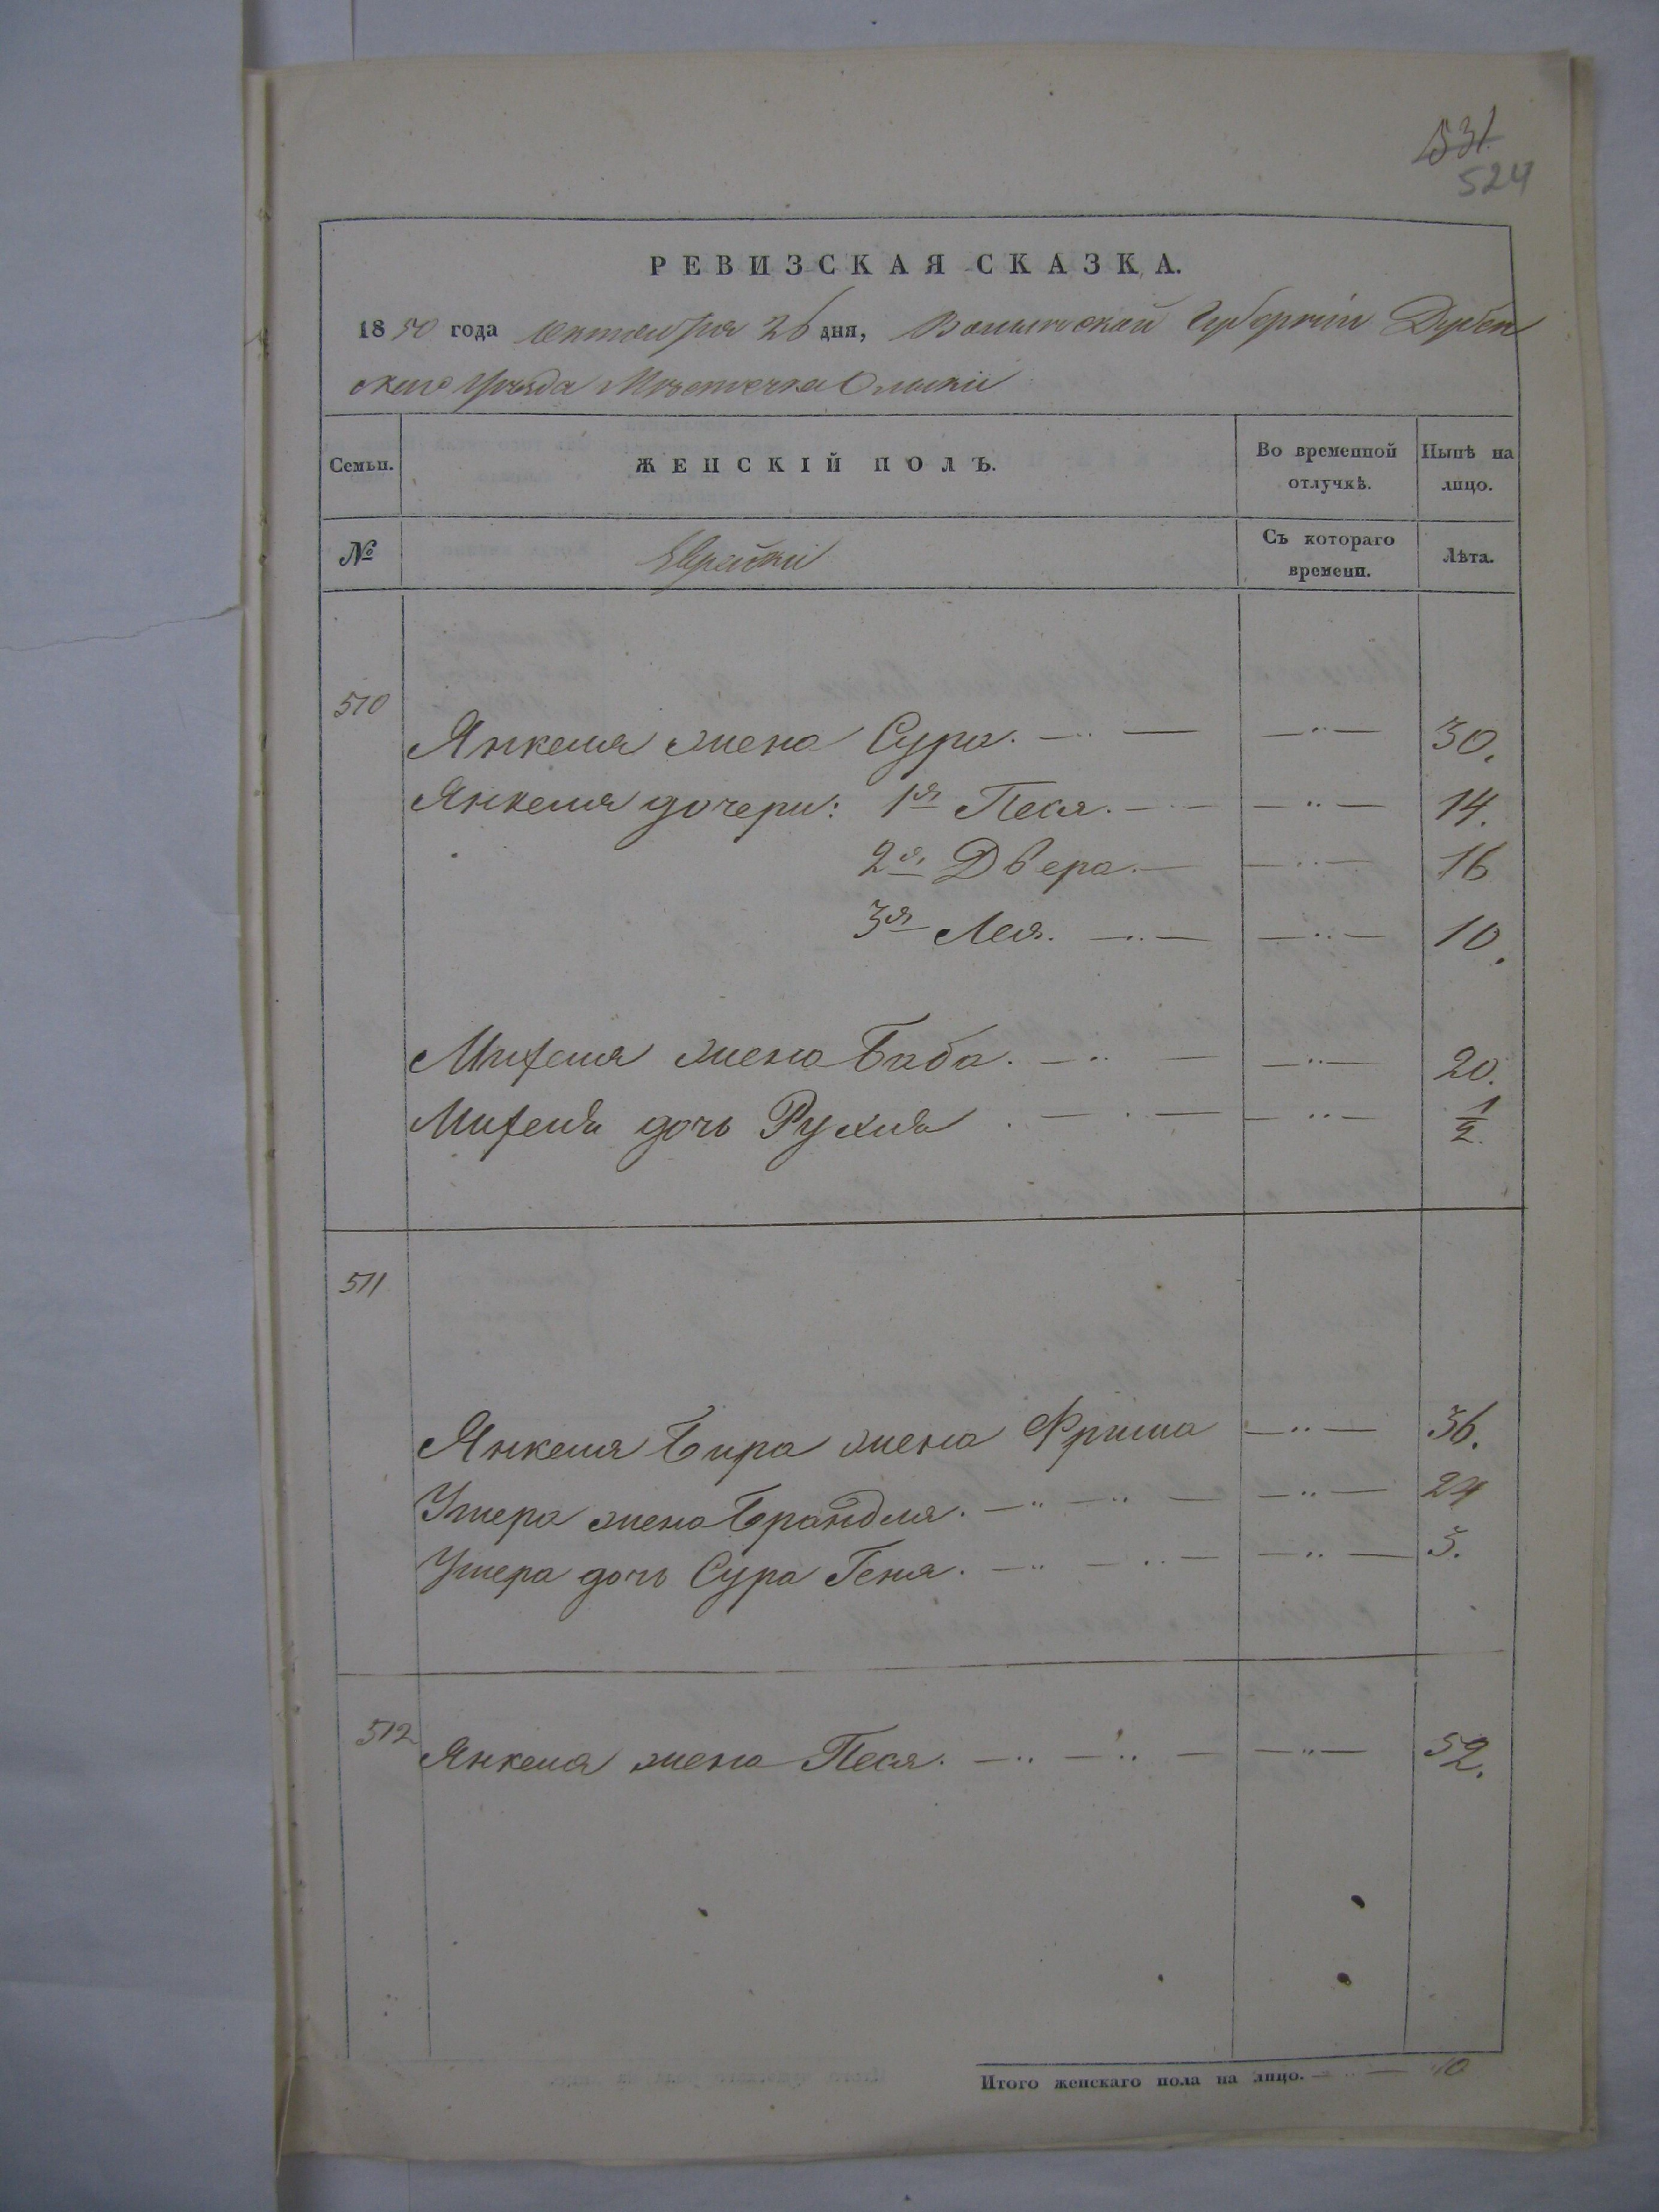 531
524
РЕВИЗСКАЯ СКАЗКА.
1850 года октября 26 дня, Волынской Губерніи Дубен
скаго Уѣзда Мѣстечка Олыки
Семьи. ЖЕНСКІЙ ПОЛЪ. Во временной отлучкѣ. Нынѣ на лицо.
№ Еврейки Съ котораго времени. Лѣта.
510
Янкеля жена Сура. — " — — " — 30.
Янкеля дочери: 1я Песя. — " — — " — 14.
2я Двера. — — " — 16
3я Лея. — " — — " — 10.
жена Баба. — " — — " — 20.
дочь Рухля. — " — — " — 1/2.
511
Янкеля Бира жена Фрима — " — 36.
Ушера жена Брандля. — " — " — — " — 24
Ушера дочь Сура Геня. — " — " — — " — 3.
512 Янкеля жена Песя. — " — " — — " — 52.
Итого женскаго пола на лицо. — " — 10